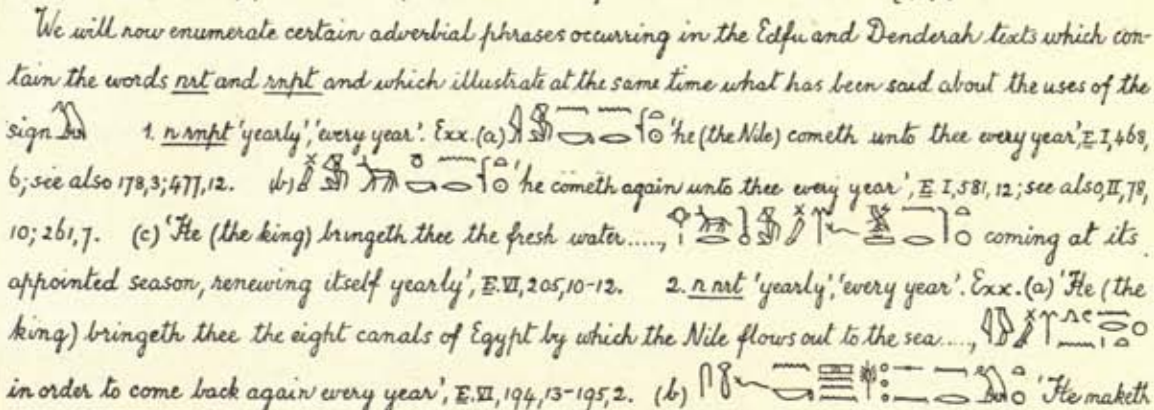 We will now enumerate certain adverbial phrases occurring in the Edfu and Denderah texts which con-
tain the words nrt and rnpt and which illustrate at the same time what has been said about the uses of the
sign 1. n rnpt 'yearly', 'every year'. Exx. (a) 'he (the Nile) cometh unto thee every year', E. I, 468,
6; see also 178,3; 477,12. (b) 'he cometh again unto thee every year', E. I, 581, 12; see also, II, 78,
10; 261,7. (c) 'He (the king) bringeth thee the fresh water....., coming at its
appointed season, renewing itself yearly', E. VI, 205, 10-12. 2. n nrt 'yearly', 'every year'. Exx. (a) 'He (the
king) bringeth thee the eight canals of Egypt by which the Nile flows out to the sea....,
in order to come back again every year', E. VI, 194, 13-195, 2. (b) 'He maketh